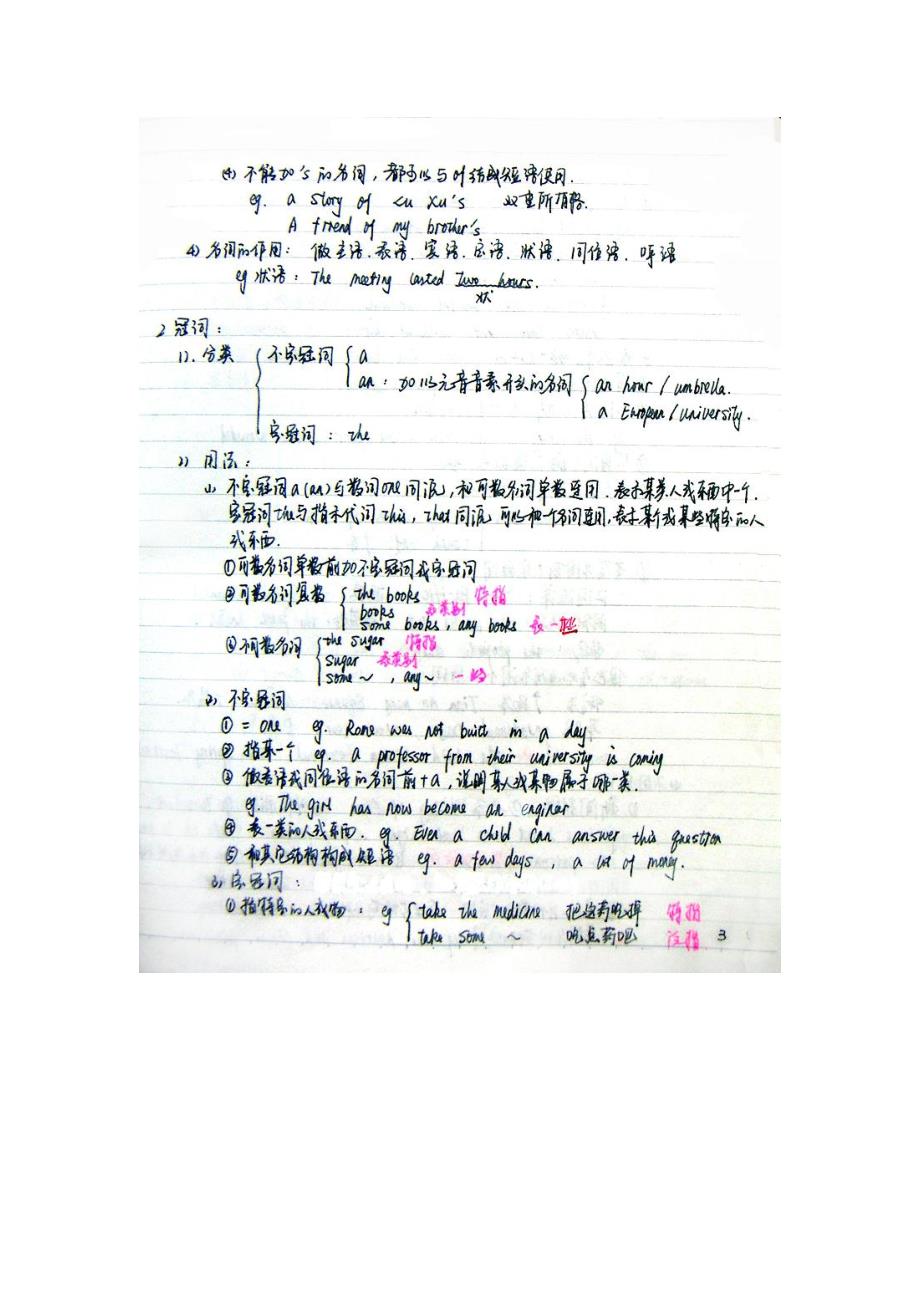 (4) 不能加's的名词，都可以与of结成短语使用.
eg. a story of Lu Xu's 双重所有格.
A friend of my brother's
4) 名词的作用: 做主语、表语、宾语、定语、状语、同位语、呼语
eg 状语: The meeting lasted Two hours.
状
2 冠词:
1). 分类 { 不定冠词 { a
an: 加以元音音素开头的名词 { an hour / umbrella.
a European / university.
定冠词: the
2) 用法:
(1) 不定冠词a(an)与数词one同源, 和可数名词单数连用. 表示某类人或东西中一个.
定冠词the与指示代词this, that同源 可以和一个名词连用, 表示某个或某些特定的人
或东西.
①可数名词单数前加不定冠词或定冠词
②可数名词复数 { the books 特指
books 表类别
some books, any books 表一些
③不可数名词 { the sugar 特指
sugar 表类别
some ~ , any ~ 一些
(2) 不定冠词
① = one eg. Rome was not built in a day
② 指某一个 eg. a professor from their university is coming
③ 做表语或同位语的名词前+a, 说明某人或某物属于哪一类.
eg. The girl has now become an enginer
④ 表一类的人或东西. eg. Even a child can answer this question
⑤ 和其它结构构成短语 eg. a few days , a lot of money.
(3) 定冠词:
①指特定的人或物: eg { take the medicine 把这药吃掉 特指
take some ~ 吃点药吧 泛指 3